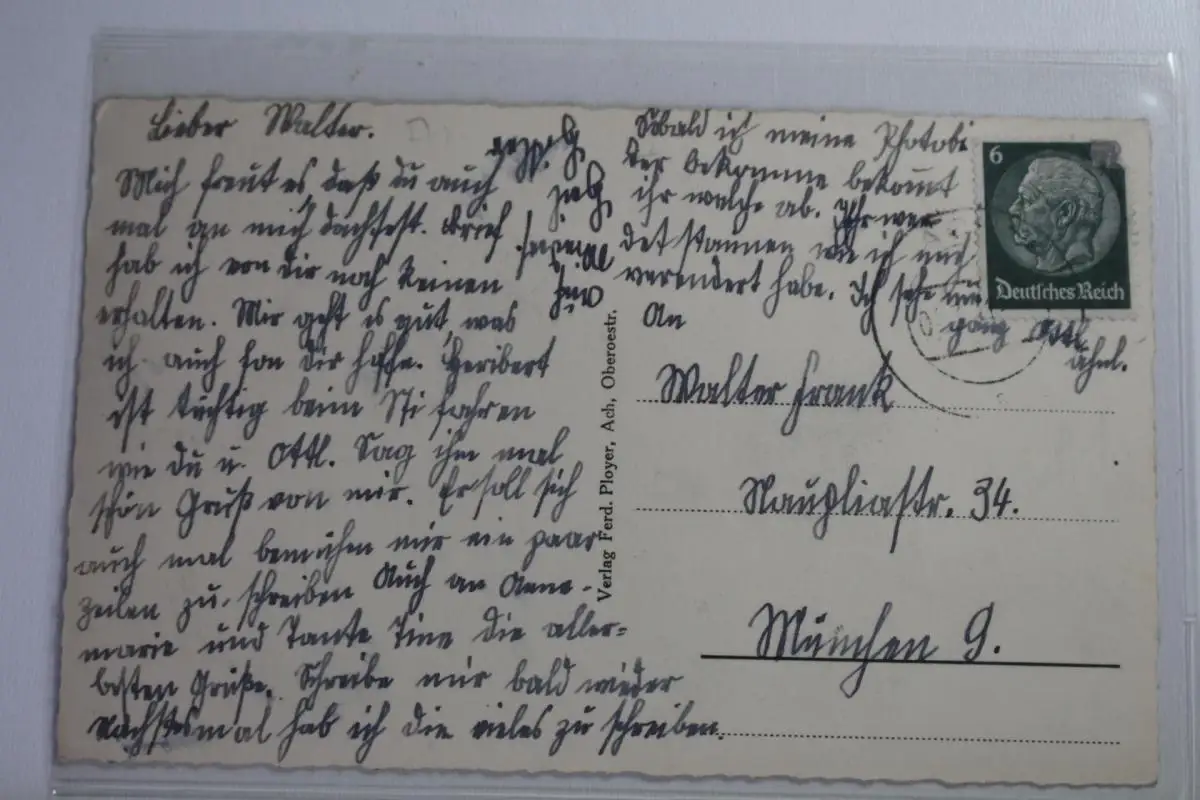 Lieber Walter.
Mich freut es daß du auch
mal an mich dachtest. Brief
hab ich von dir noch keinen
erhalten. Mir geht es gut, was
ich auch fon dir hoffe. Heribert
ist tüchtig beim Ski fahren
wie du u. Ottl. Sag ihm mal
schön Gruß von mir. Er soll sich
auch mal bemühen mir ein paar
zeilen zu schreiben Auch an Anne-
marie und Tante Tine die aller=
besten Grüße. Schreibe mir bald wieder
Nächstesmal hab ich die vieles zu schreiben.
Sobald ich meine Photobi
lder bekomme bekommt
ihr welche ab. Ihr wer
det stannen wie ich mich
verendert habe. Ich sehe
Ottl.
ähnl.
6
Deutsches Reich
Verlag Ferd. Ployer, Ach, Oberoestr.
An
Walter Frank
Naupliastr. 34.
München 9.